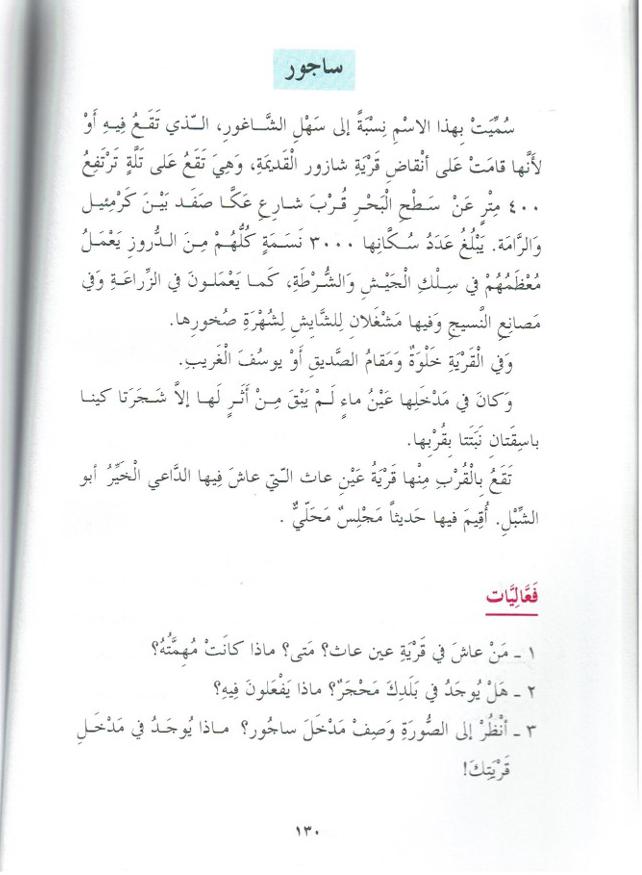 ساجور
سُمِّيَتْ بِهذا الاسْمِ نِسْبَةً إلى سَهْلِ الشَّاغورِ، الّذي تَقَعُ فيهِ أَوْ
لأَنَّها قامَتْ عَلى أنْقاضِ قَرْيَةِ شازور الْقَديمَةِ، وَهِيَ تَقَعُ عَلى تَلَّةٍ تَرْتَفِعُ
٤٠٠ مِتْرٍ عَنْ سَطْحِ الْبَحْرِ قُرْبَ شارِعِ عَكّا صَفَد بَيْنَ كَرْمِئيل
وَالرَّامَة. يَبْلُغُ عَدَدُ سُكّانِها ٣٠٠٠ نَسَمَةٍ كُلُّهُمْ مِنَ الدُّروزِ يَعْمَلُ
مُعْظَمُهُمْ في سِلْكِ الْجَيْشِ وَالشُّرْطَةِ، كَما يَعْمَلونَ في الزِّراعَةِ وَفي
مَصانِعِ النَّسيجِ وَفيها مَشْغَلانِ لِلشَّايِشِ لِشُهْرَةِ صُخورِها.
وَفي الْقَرْيَةِ خَلْوَةٌ وَمَقامُ الصَّديقِ أوْ يوسُفَ الْغَريبِ.
وَكانَ في مَدْخَلِها عَيْنُ ماءٍ لَمْ يَبْقَ مِنْ أَثَرٍ لَها إلاَّ شَجَرَتا كينا
باسِقَتانِ نَبَتَتا بِقُرْبِها.
تَقَعُ بِالْقُرْبِ مِنْها قَرْيَةُ عَيْنِ عاث الّتي عاشَ فيها الدَّاعي الْخَيِّرُ أبو
الشِّبْلِ. أُقِيمَ فيها حَديثاً مَجْلِسٌ مَحَلّيٌّ .
فَعَّالِيَّات
١ - مَنْ عاشَ في قَرْيَةِ عين عاث؟ مَتى؟ ماذا كانَتْ مُهِمَّتُهُ؟
٢ - هَلْ يُوجَدُ في بَلَدِكَ مَحْجَرٌ؟ ماذا يَفْعَلونَ فِيهِ؟
٣ - أنْظُرْ إلى الصُّورَةِ وَصِفْ مَدْخَلَ ساجُور؟ ماذا يُوجَدُ في مَدْخَلِ
قَرْيَتِكَ!
١٣٠